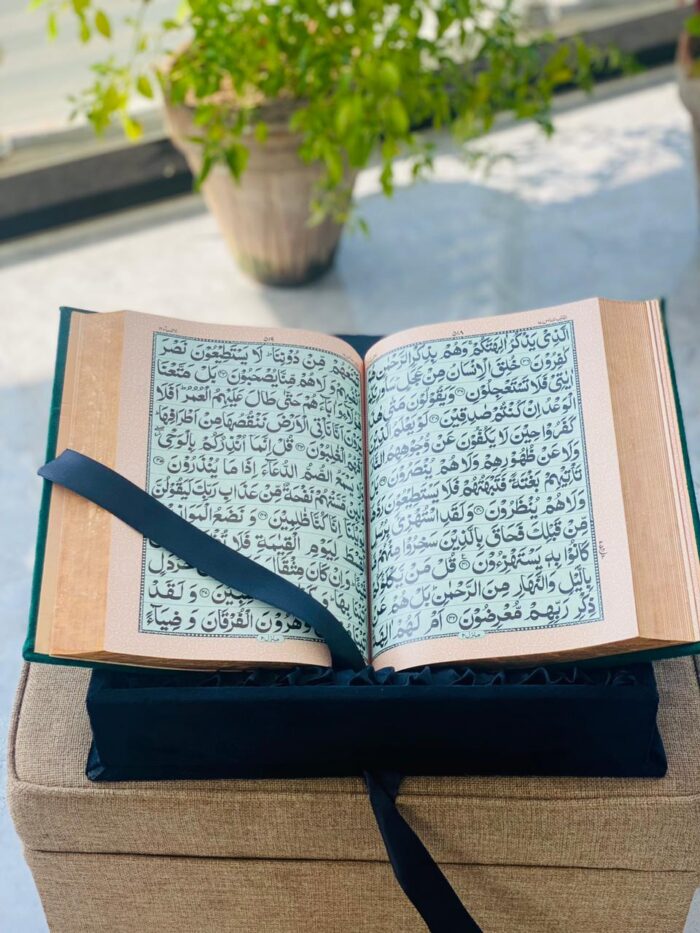 ٥١٨
الَّذِىْ يَذْكُرُ اٰلِهَتَكُمْ وَهُمْ بِذِكْرِ الرَّحْمٰنِ
كٰفِرُوْنَ ۝٣٦ خُلِقَ الْاِنْسَانُ مِنْ عَجَلٍ
اٰيٰتِىْ فَلَا تَسْتَعْجِلُوْنِ ۝٣٧ وَيَقُوْلُوْنَ مَتٰى
الْوَعْدُ اِنْ كُنْتُمْ صٰدِقِيْنَ ۝٣٨ لَوْ يَعْلَمُ
كَفَرُوْا حِيْنَ لَا يَكُفُّوْنَ عَنْ وُّجُوْهِهِمُ
وَلَا عَنْ ظُهُوْرِهِمْ وَلَا هُمْ يُنْصَرُوْنَ ۝٣٩
تَاْتِيْهِمْ بَغْتَةً فَتَبْهَتُهُمْ فَلَا يَسْتَطِيْعُوْنَ
وَلَا هُمْ يُنْظَرُوْنَ ۝٤٠ وَلَقَدِ اسْتُهْزِئَ
مِّنْ قَبْلِكَ فَحَاقَ بِالَّذِيْنَ سَخِرُوْا مِنْهُمْ
كَانُوْا بِهٖ يَسْتَهْزِءُوْنَ ۝٤١ قُلْ مَنْ يَّكْلَؤُكُمْ
بِالَّيْلِ وَالنَّهَارِ مِنَ الرَّحْمٰنِ بَلْ هُمْ عَنْ
ذِكْرِ رَبِّهِمْ مُّعْرِضُوْنَ ۝٤٢ اَمْ لَهُمْ
٥١٩
تَمْنَعُهُمْ مِّنْ دُوْنِنَا لَا يَسْتَطِيْعُوْنَ نَصْرَ
وَلَا هُمْ مِّنَّا يُصْحَبُوْنَ ۝٤٣ بَلْ مَتَّعْنَا
وَاٰبَآءَهُمْ حَتّٰى طَالَ عَلَيْهِمُ الْعُمُرُ اَفَلَا
اَنَّا نَاْتِى الْاَرْضَ نَنْقُصُهَا مِنْ اَطْرَافِهَا
الْغٰلِبُوْنَ ۝٤٤ قُلْ اِنَّمَآ اُنْذِرُكُمْ بِالْوَحْىِ
يَسْمَعُ الصُّمُّ الدُّعَآءَ اِذَا مَا يُنْذَرُوْنَ ۝٤٥
مَّسَّتْهُمْ نَفْحَةٌ مِّنْ عَذَابِ رَبِّكَ لَيَقُوْلُنَّ
اِنَّا كُنَّا ظٰلِمِيْنَ ۝٤٦ وَنَضَعُ الْمَوَازِيْنَ
لِيَوْمِ الْقِيٰمَةِ فَلَا
وَاِنْ كَانَ مِثْقَالَ خَرْدَلٍ
بِهَا ۝٤٧ وَلَقَدْ
وَهٰرُوْنَ الْفُرْقَانَ وَضِيَآءً